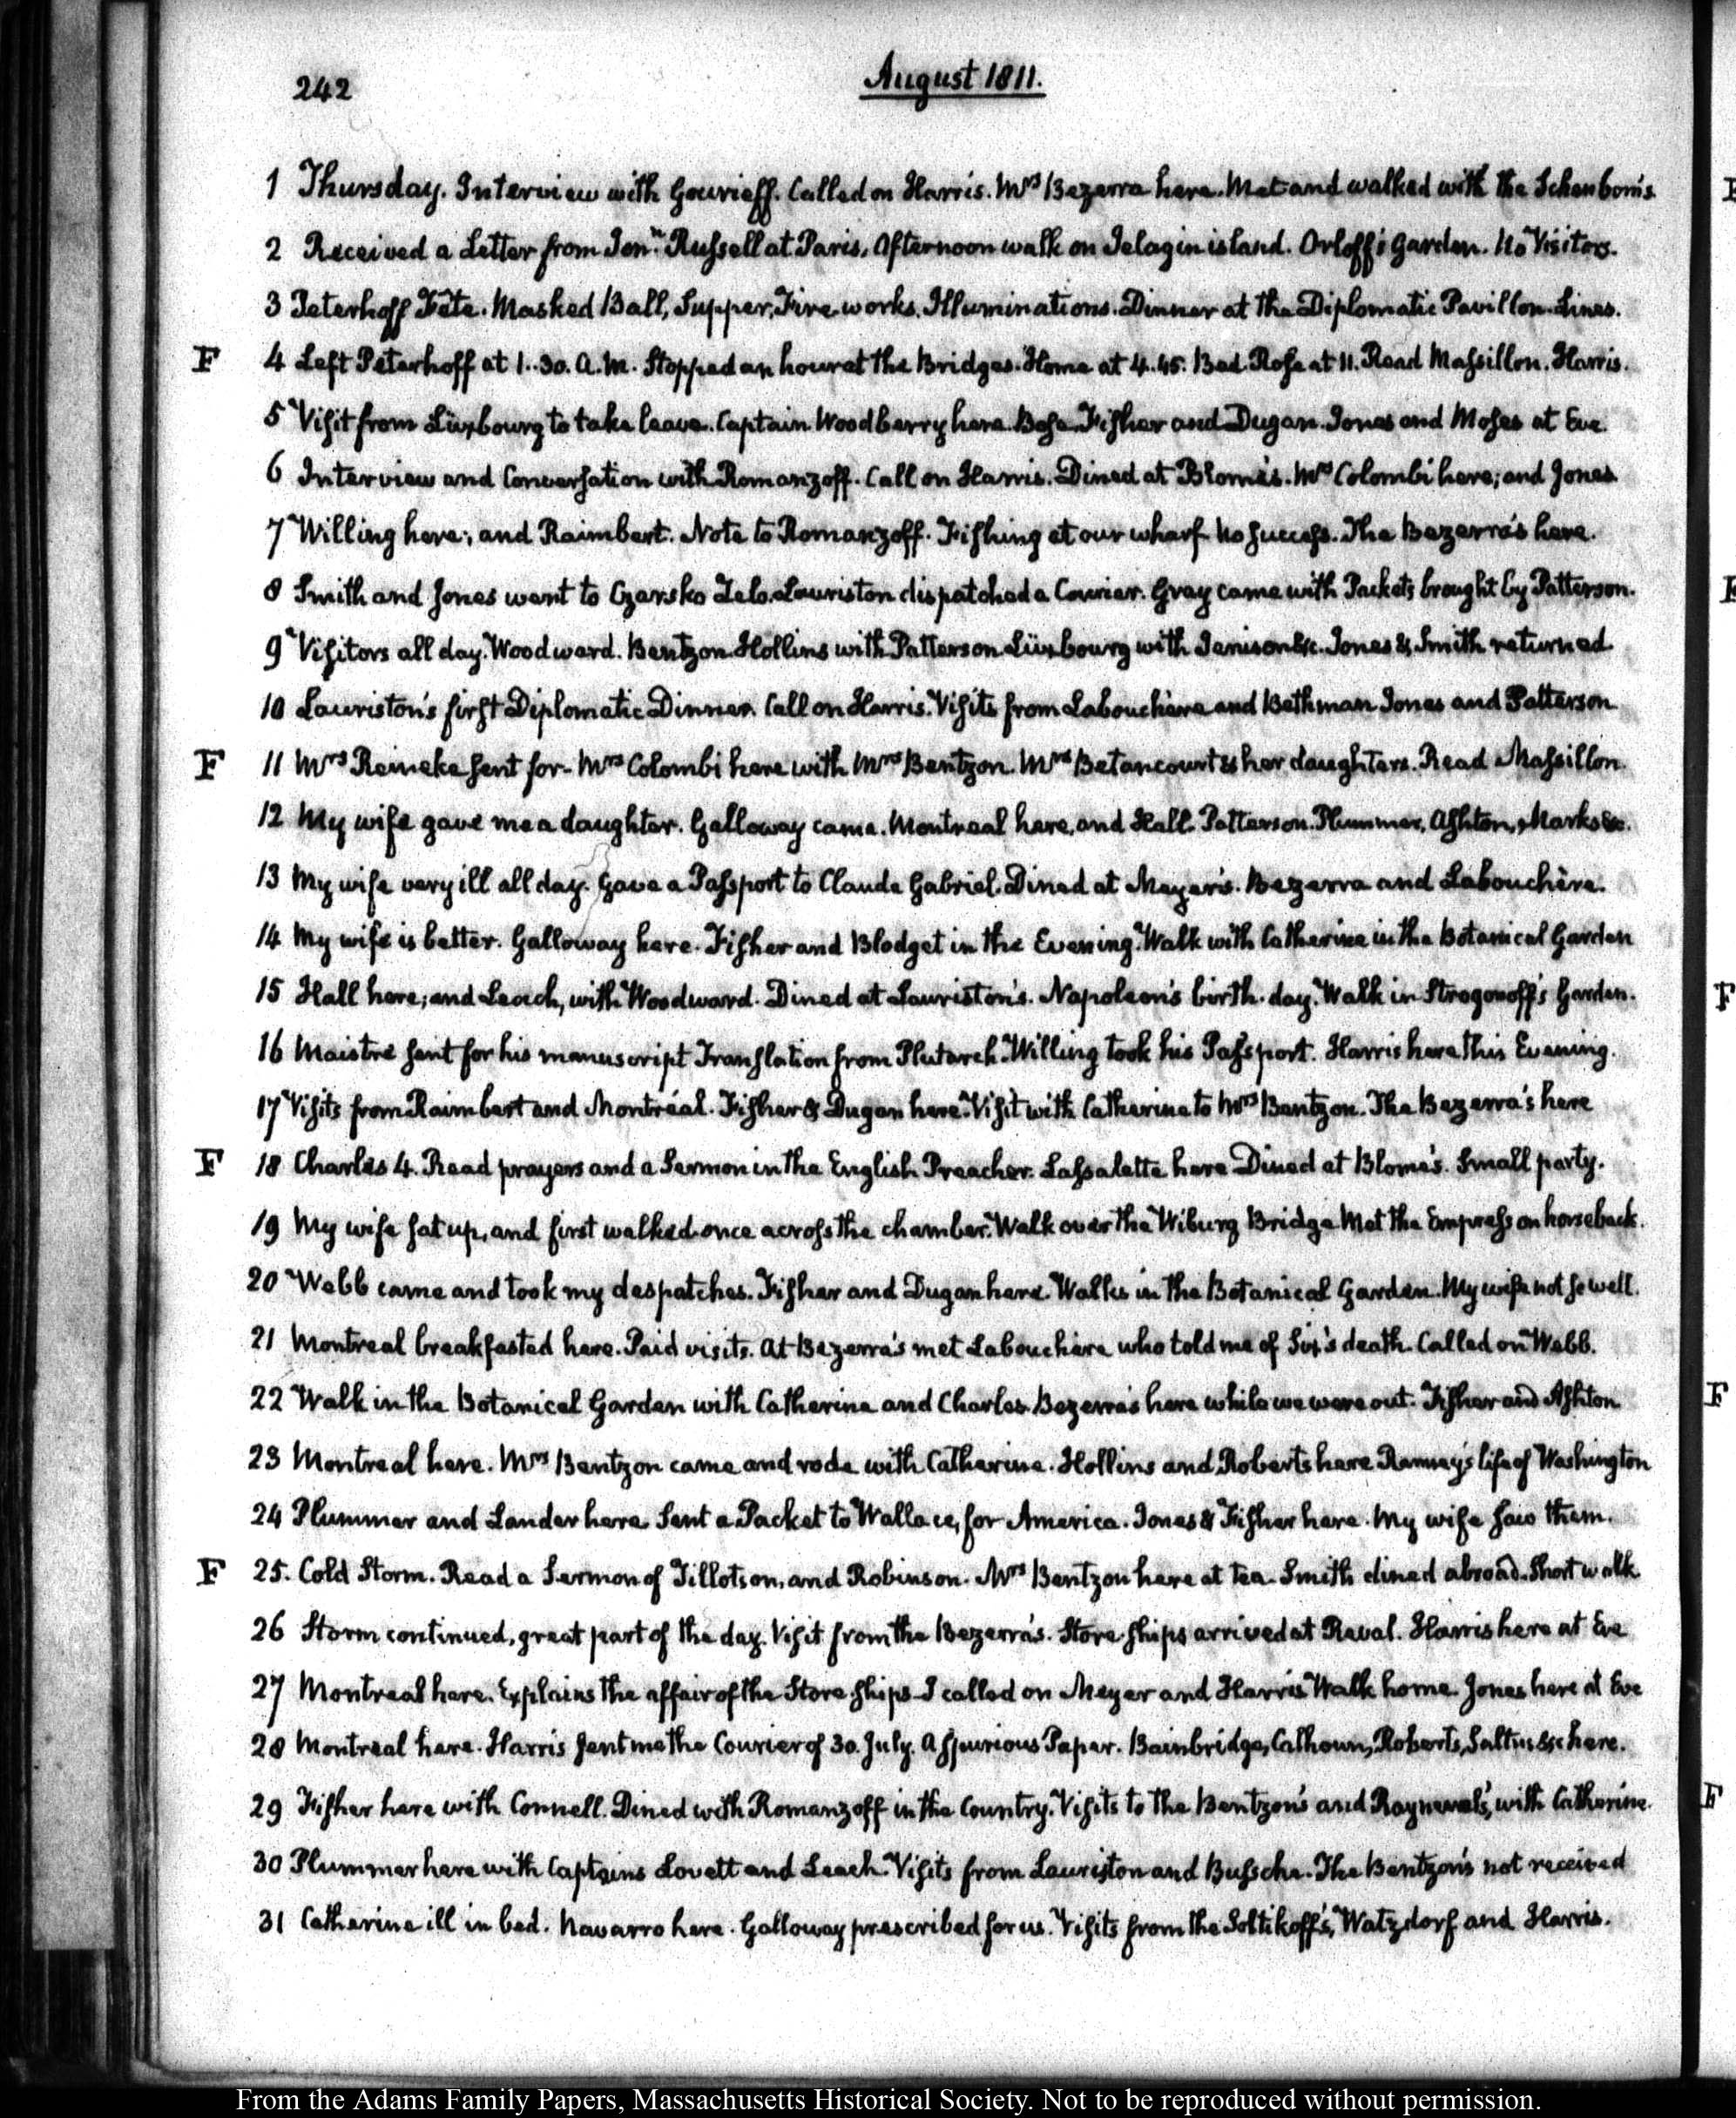 242
August 1811.
1 Thursday. Interview with Gourieff. Called on Harris. Mrs Bezerra here. Met and walked with the Schenbom's
2 Received a Letter from Jonn. Russell at Paris. Afternoon walk on Jelagin island. Orloff's Garden. No Visitors.
3 Peterhoff Fête. Masked Ball, Supper, Fire works. Illuminations. Dinner at the Diplomatic Pavillon. Lines.
F 4 Left Peterhoff at 1..30. A.M. Stopped an hour at the Bridges. Home at 4..45. Bed. Rose at 11. Read Massillon. Harris.
5 Visit from Lüxbourg to take leave. Captain Woodberry here. Bose. Fisher and Dugan. Jones and Moses at Eve.
6 Interview and Conversation with Romanzoff. Call on Harris. Dined at Blome's. Mrs Colombi here; and Jones.
7 Willing here; and Raimbert. Note to Romanzoff. Fishing at our wharf. No success. The Bezerra's here.
8 Smith and Jones went to Czarsko Zelo. Lauriston dispatched a Courier. Gray came with Packets brought by Patterson.
9 Visitors all day. Woodward. Bentzon. Hollins with Patterson. Lüxbourg with Jenison &c. Jones & Smith returned
10 Lauriston's first Diplomatic Dinner. Call on Harris. Visits from Labouchère and Bethman Jones and Patterson
F 11 Mrs Reineke sent for. Mrs Colombi here with Mrs Bentzon. Mrs Betancourt & her daughters. Read Massillon.
12 My wife gave me a daughter. Galloway came. Montreal here, and Hall. Patterson. Plummer, Ashton, Marks &c.
13 My wife very ill all day. Gave a Passport to Claude Gabriel. Dined at Meyer's. Bezerra and Labouchère.
14 My wife is better. Galloway here. Fisher and Blodget in the Evening. Walk with Catherine in the Botanical Garden
15 Hall here; and Leach, with Woodward. Dined at Lauriston's. Napoleon's birth-day. Walk in Strogonoff's Garden.
16 Maistre sent for his manuscript Translation from Plutarch. Willing took his Passport. Harris here this Evening.
17 Visits from Raimbert and Montréal. Fisher & Dugan here. Visit with Catherine to Mrs Bentzon. The Bezerra's here
F 18 Charles 4. Read prayers and a Sermon in the English Preacher. Lassalette here Dined at Blome's. Small party.
19 My wife sat up, and first walked once across the chamber. Walk over the Wiburg Bridge. Met the Empress on horseback.
20 Webb came and took my despatches. Fisher and Dugan here. Walks in the Botanical Garden. My wife not so well.
21 Montreal breakfasted here. Paid visits. At Bezerra's met Labouchere who told me of Six's death. Called on Webb.
22 Walk in the Botanical Garden with Catherine and Charles. Bezerra's here while we were out. Fisher and Ashton
23 Montreal here. Mrs Bentzon came and rode with Catherine. Hollins and Roberts here Ramsay's life of Washington
24 Plummer and Lander here Sent a Packet to Wallace, for America. Jones & Fisher here. My wife saw them.
F 25. Cold Storm. Read a Sermon of Tillotson, and Robinson. Mrs Bentzon here at tea. Smith dined abroad. Short walk.
26 Storm continued, great part of the day. Visit from the Bezerra's. Store ships arrived at Reval. Harris here at Eve
27 Montreal here. Explains the affair of the Store ships. I called on Meyer and Harris Walk home. Jones here at Eve
28 Montreal here. Harris sent me the Courier of 30. July. A spurious Paper. Bainbridge, Calhoun, Roberts, Saltus &c here.
29 Fisher here with Connell. Dined with Romanzoff in the Country. Visits to the Bentzon's and Rayneval's, with Catherine.
30 Plummer here with Captains Lovett and Leach. Visits from Lauriston and Bussche. The Bentzon's not received
31 Catherine ill in bed. Navarro here. Galloway prescribed for us. Visits from the Soltikoff's, Watzdorf and Harris.
From the Adams Family Papers, Massachusetts Historical Society. Not to be reproduced without permission.